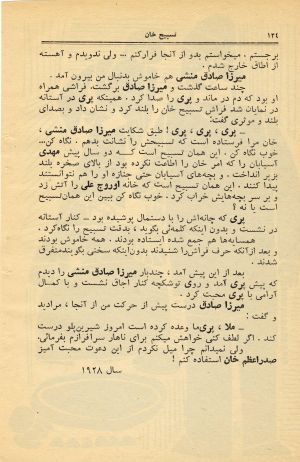 ۱۲۴ تسبیح خان
برجستم . میخواستم بدو از آنجا فرار کنم ... ولی ندویدم و آهسته
از اطاق خارج شدم .
میرزا صادق منشی هم خاموش بدنبال من بیرون آمد .
چند ساعت گذشت و میرزا صادق برگشت. فراشی همراه
او بود که دم در ماند و پری را صدا کرد . همینکه پری در آستانه
در نمایان شد فراش تسبیح خان را بلند کرد و نشان داد و بصدای
بلند و موثری گفت:
ــ پری ، پری ، پری ! طبق شکایت میرزا صادق منشی ،
خان مرا فرستاده است که تسبیحش را نشانت بدهم . نگاه کن...
خوب نگاه کن . این همان تسبیح است که دو سال پیش مهدی
آسیابان را که امر خان را اطاعت نکرده بود از بالای صخره بلند
بزیر انداخت . و بچه‌های آسیابان حتی جنازه او را هم نتوانستند
پیدا کنند . این همان تسبیح است که خانه اوروج علی را آتش زد
و بر سر بچه‌هایش خراب کرد . خوب نگاه کن ببین این همان تسبیح
است یا نه ؟
پری که چانه‌اش را با دستمال پوشیده بود ــ کنار آستانه
در نشست و بدون اینکه کلمه‌ئی بگوید ، بدقت تسبیح را نگاه کرد .
همسایه‌ها هم جمع شده ایستاده بودند . همه خاموش بودند
و بعد از آنکه حرف فراش را شنیدند بدون اینکه سخنی بگویند متفرق
شدند .
بعد از این پیش آمد ، چندبار میرزا صادق منشی را دیدم
که پیش پری آمد و روی توشکچه کنار اجاق نشست و با کمال
آرامی با پری صحبت کرد .
میرزا صادق درست پیش از حرکت من از آنجا ، مرا دید
و گفت :
ــ ملا ، پری‌ما وعده کرده است امروز شیرین‌پلو درست
کند . اگر لطف کنی خواهش میکنم برای ناهار سرافرازم بفرمائی.
ولی نمیدانم چرا میل نکردم از این دعوت محبت آمیز
صدراعظم خان استفاده کنم !
سال ۱۹۲۸